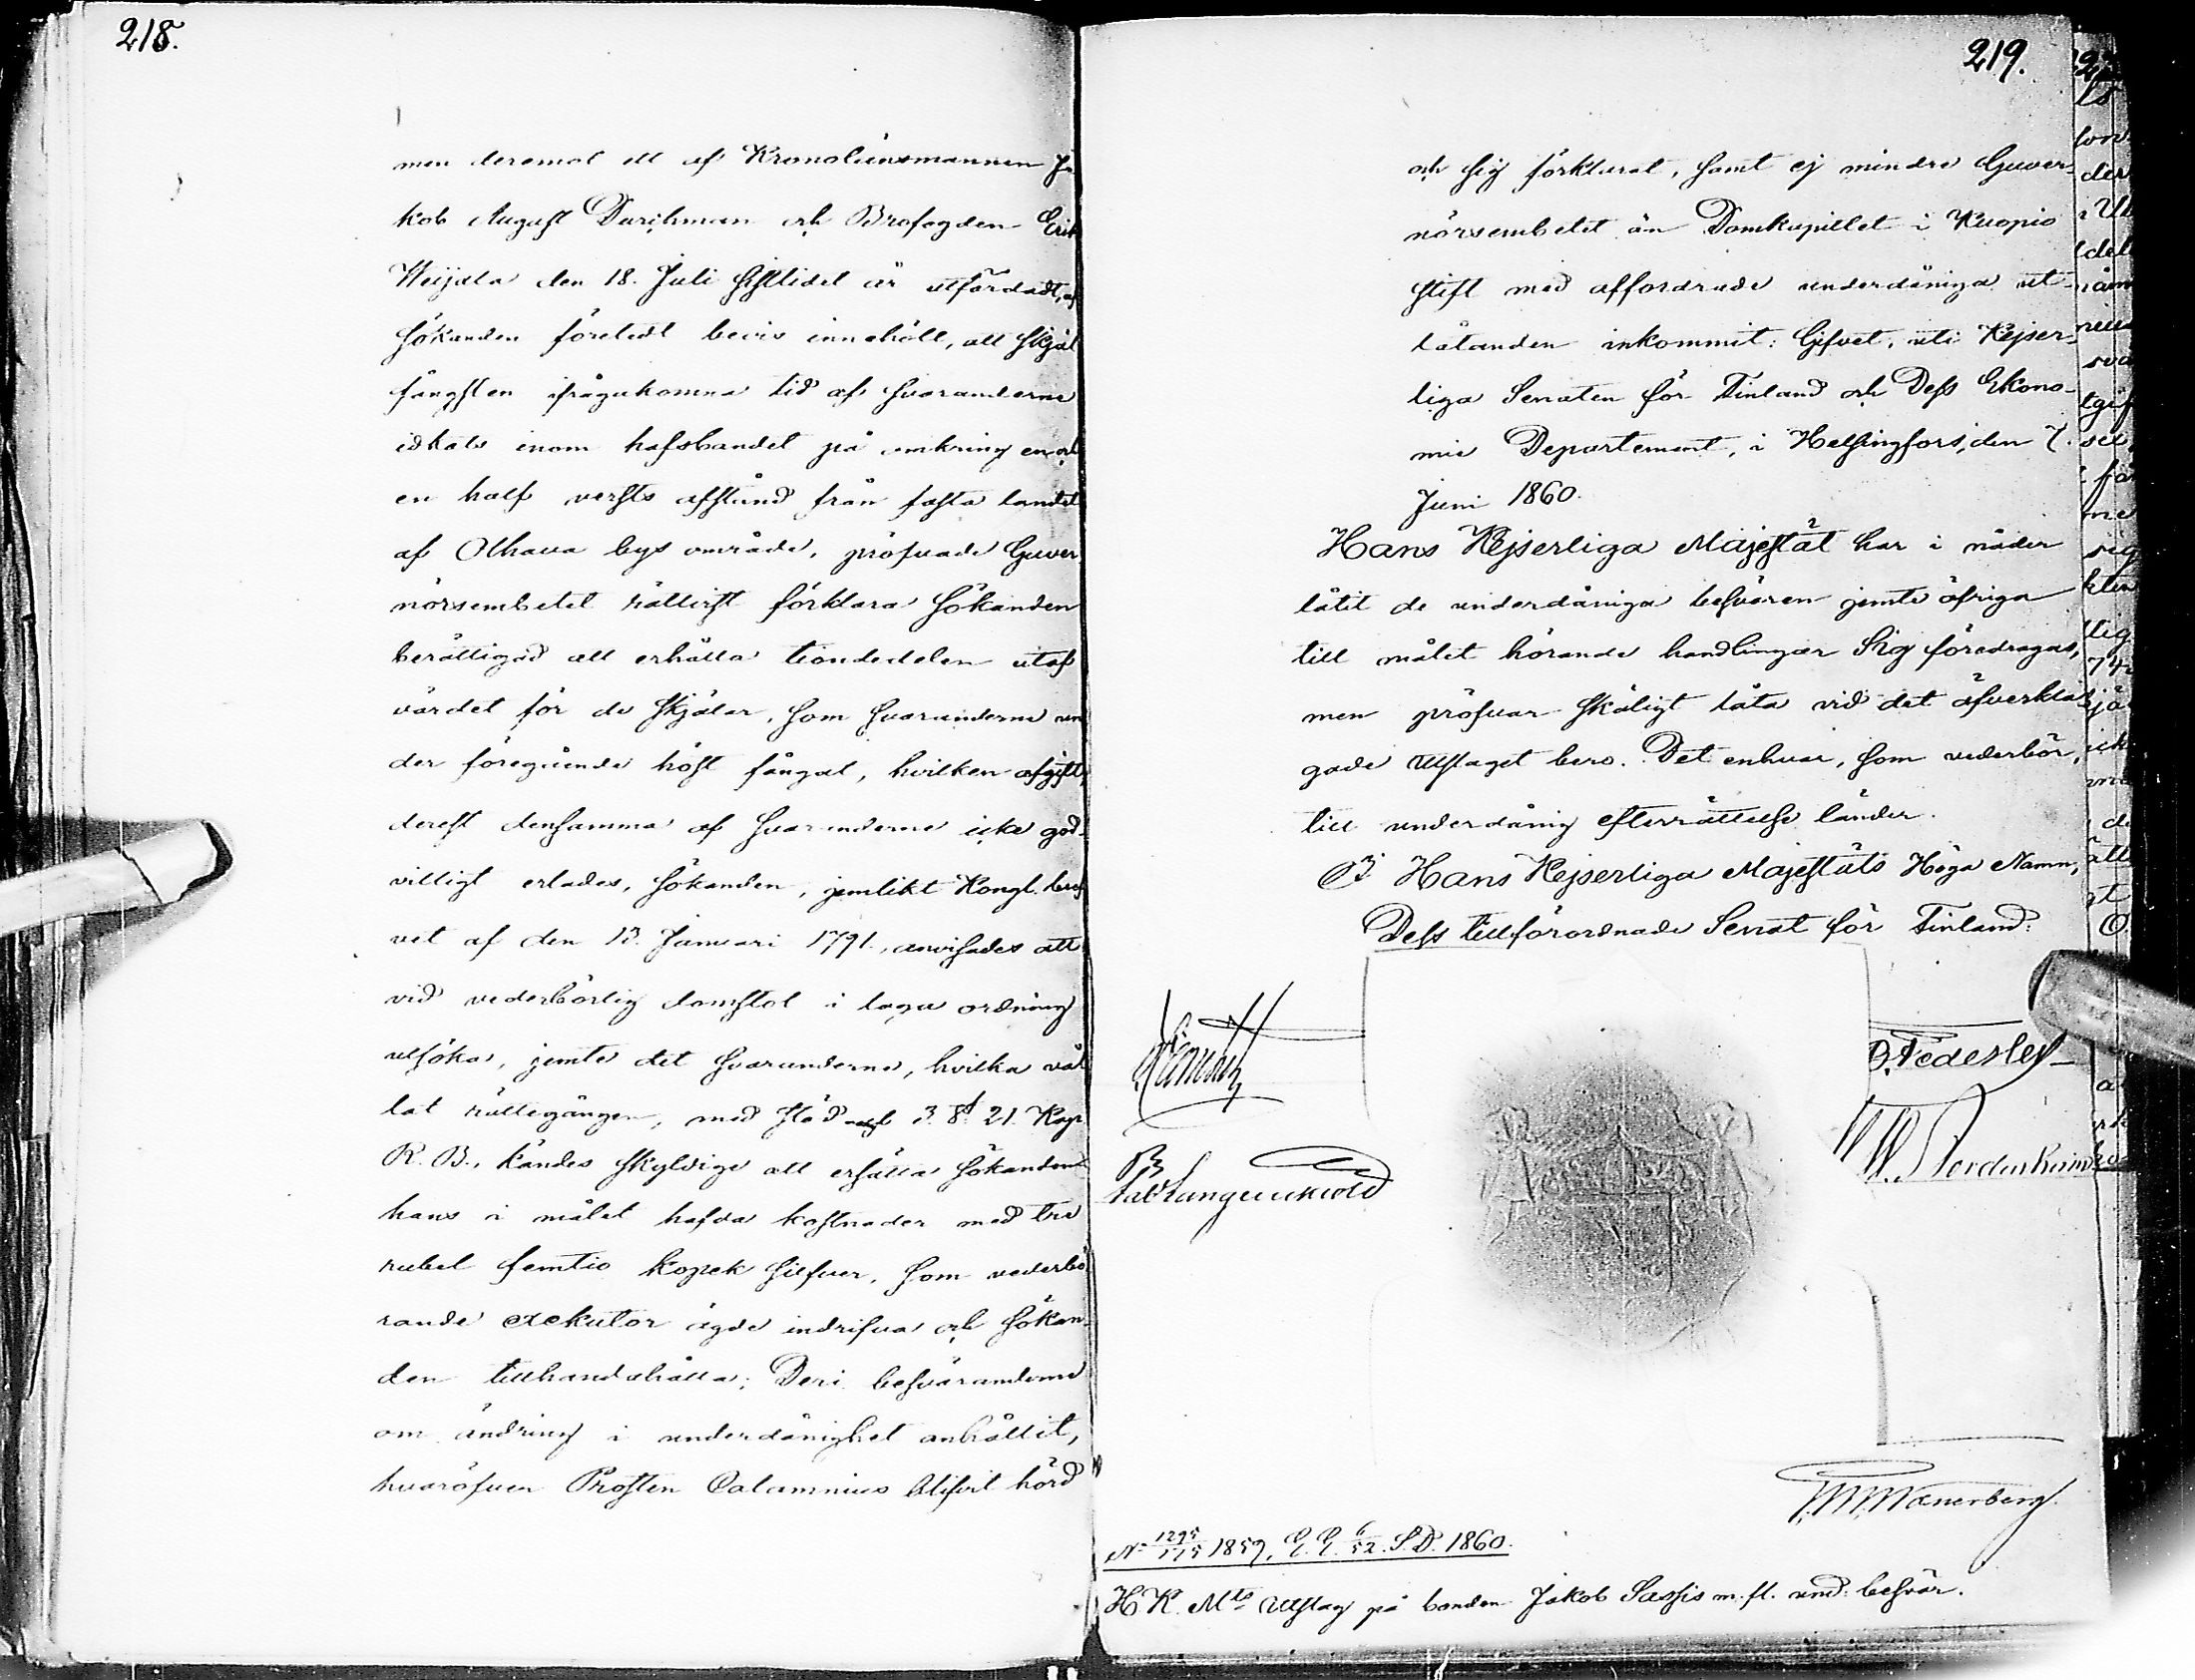 218.
men deremot ett af Kronolänsmannen Ja
kob August Durchman och Brofogden Erik
Weijola den 18. Juli sistlidet år utfärdadt, af
sökanden företedt bevis innehöll, att skjäl
fångsten ifrågakomna tid af svaranderne
idkats inom hafsbandet på omkring en och
en half versts afstånd från fasta landet
af Olhava bys område, pröfvade Guver
nörsembetet rättvist förklara sökanden
berättigad att erhålla tiondedelen utaf
värdet för de skjälar, som svaranderne un
der föregående höst fångat, hvilken afgift,
derest densamma af svaranderne icke god-
villigt erlades, sökanden, jemlikt Kongl. bref
vet af den 13. Januari 1791, anvisades att
vid vederbörlig domstol i laga ordning
utsöka, jemte det svaranderne, hvilka vål
lat rättegången, med stöd af 3. § 21. Kap
R. B., kändes skyldige att ersätta sökanden
hans i målet hafda kostnader med tre
rubel femtio kopek silfver, som vederbö
rande exekutor ägde indrifva och sökan-
den tillhandahålla; Deri besväranderne
om ändring i underdånighet anhållit,
hvaröfver Prosten Calamnius blifvit hörd
219.
och sig förklarat, samt ej mindre Guver-
nörsembetet än Domkapitlet i Kuopio
stift med affordrade underdåniga ut-
låtanden inkommit: Gifvet, uti Kejser-
liga Senaten för Finland och Dess Ekono-
mie Departement, i Helsingfors, den 7.
Juni 1860.
Hans Kejserliga Majestät har i nåder
låtit de underdåniga besvären jemte öfriga
till målet hörande handlingar Sig föredragas,
men pröfvar skäligt låta vid det öfverkla
gade utslaget bero. Det enhvar, som vederbör,
till underdånig efterrättelse länder.
I Hans Kejserliga Majestäts Höga Namn,
Dess tillförordnade Senat för Finland:
Fab Langenskiöld
W. Nordenheim
Wænerberg
No 1295/175 1859, E. E. 6/52. S. D. 1860.
H. K. Mts Utslag på bonden Jakob Sassis m. fl. und: besvär.